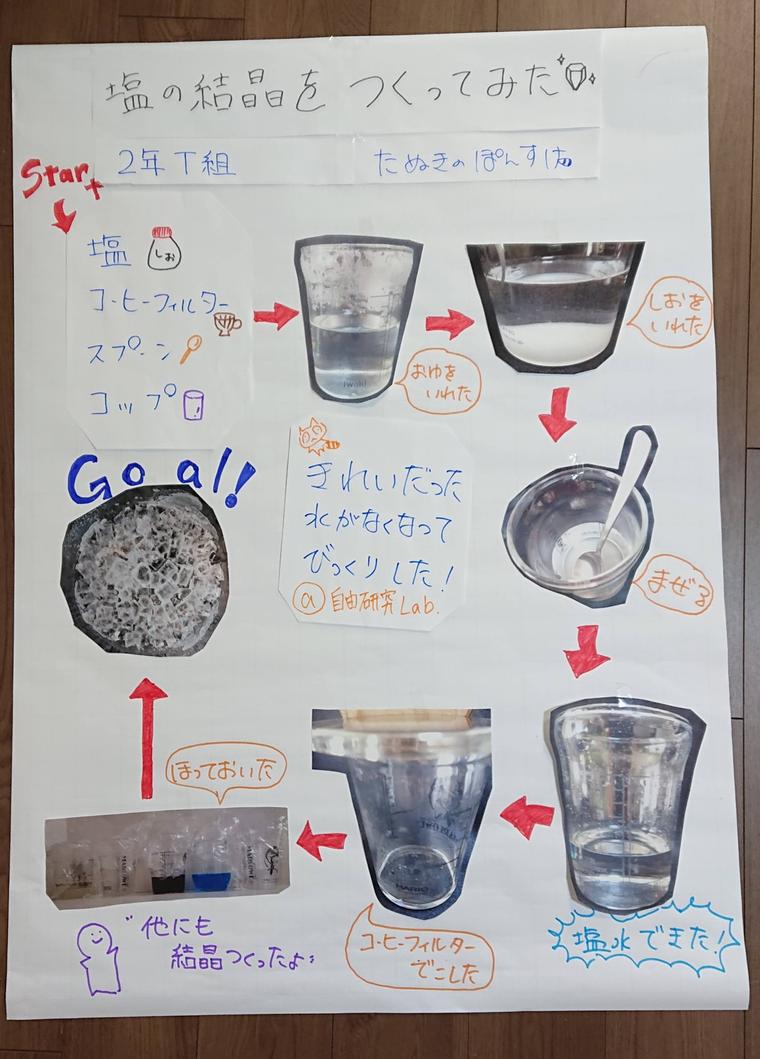 塩の結晶を つくってみた
2年T組 たぬきのぽんすけ
Start
塩
しお
コーヒーフィルター
スプーン
コップ
iwaki
おゆを
いれた
しおを
いれた
まぜる
塩水できた!
コーヒーフィルター
でこした
HARIO
ほっておいた
他にも
結晶つくったよ
Goal!
きれいだった
水がなくなって
びっくりした!
@自由研究Lab.